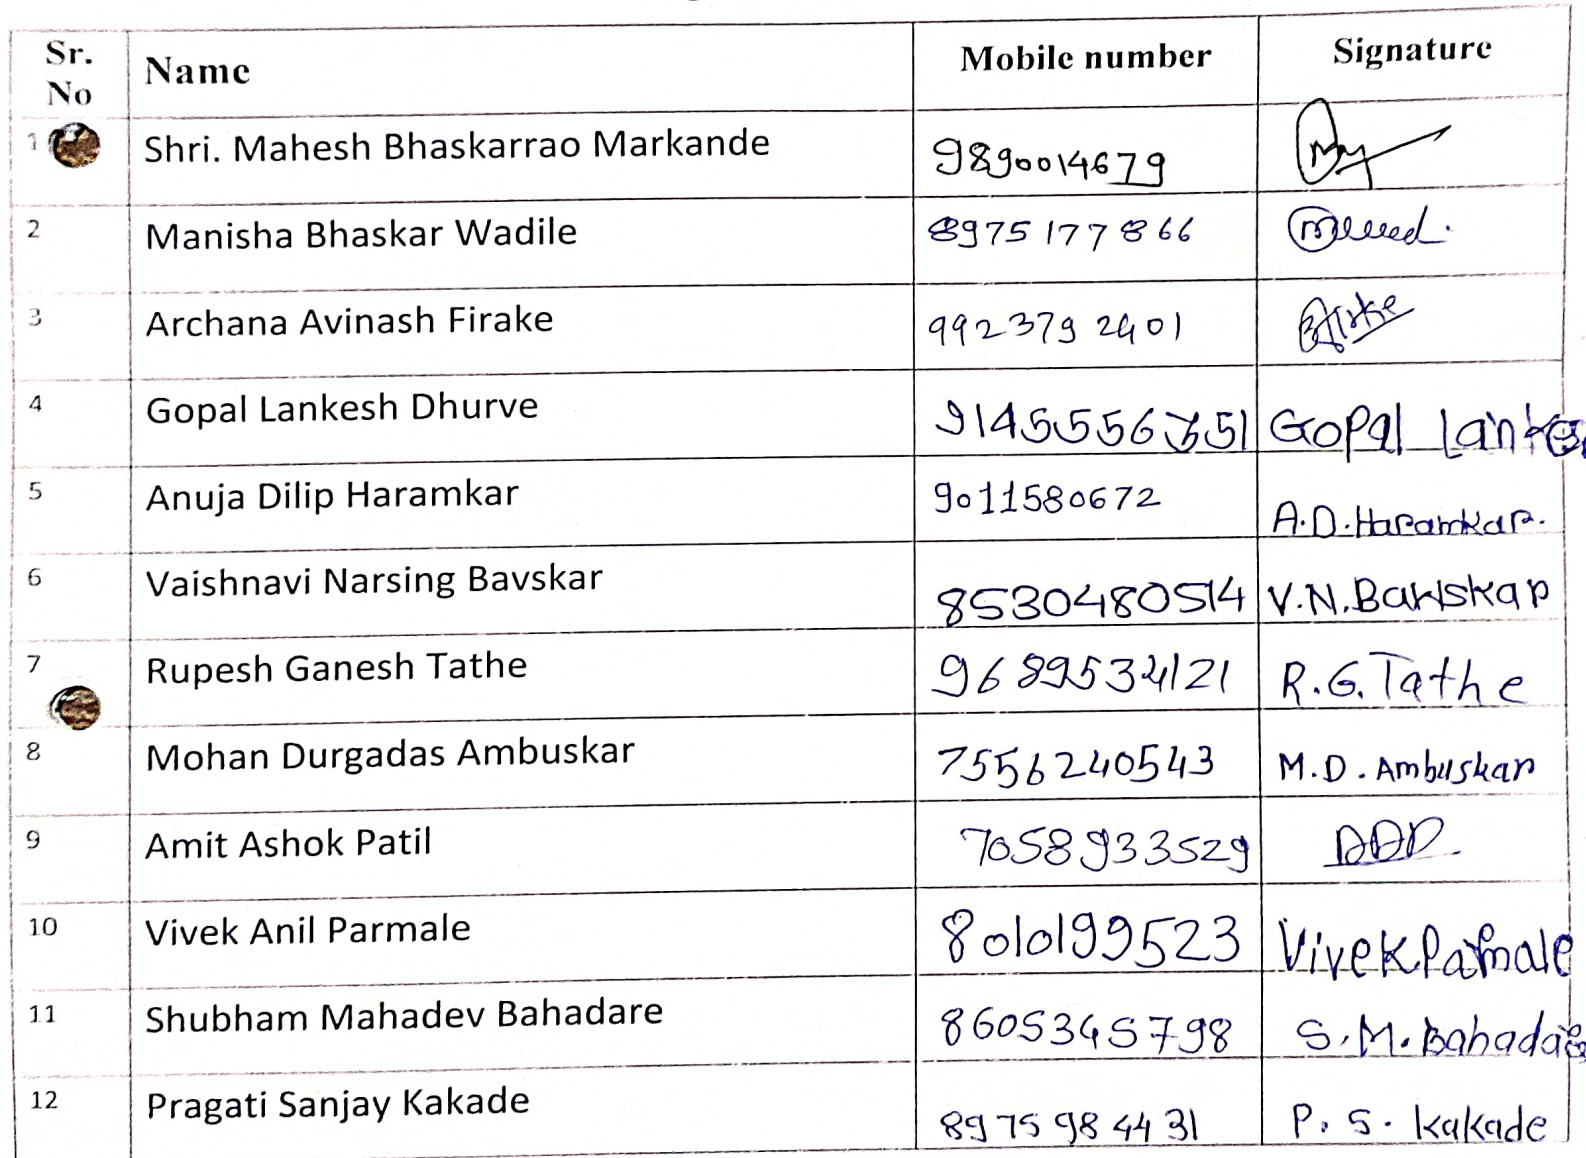 Sr. No Name Mobile number Signature
1 Shri. Mahesh Bhaskarrao Markande 9890014679
2 Manisha Bhaskar Wadile 8975177866
3 Archana Avinash Firake 9923792401
4 Gopal Lankesh Dhurve Gopal
5 Anuja Dilip Haramkar 9011580672 A.D.Haramkar.
6 Vaishnavi Narsing Bavskar 8530480514 V.N.Bawskar
7 Rupesh Ganesh Tathe R.G.Tathe
8 Mohan Durgadas Ambuskar 7556240543 M.D.Ambuskar
9 Amit Ashok Patil 7058933529
10 Vivek Anil Parmale 8010199523 Vivek Parmale
11 Shubham Mahadev Bahadare 8605345798 S.M.Bahadare
12 Pragati Sanjay Kakade 8975984431 P. S. kakade